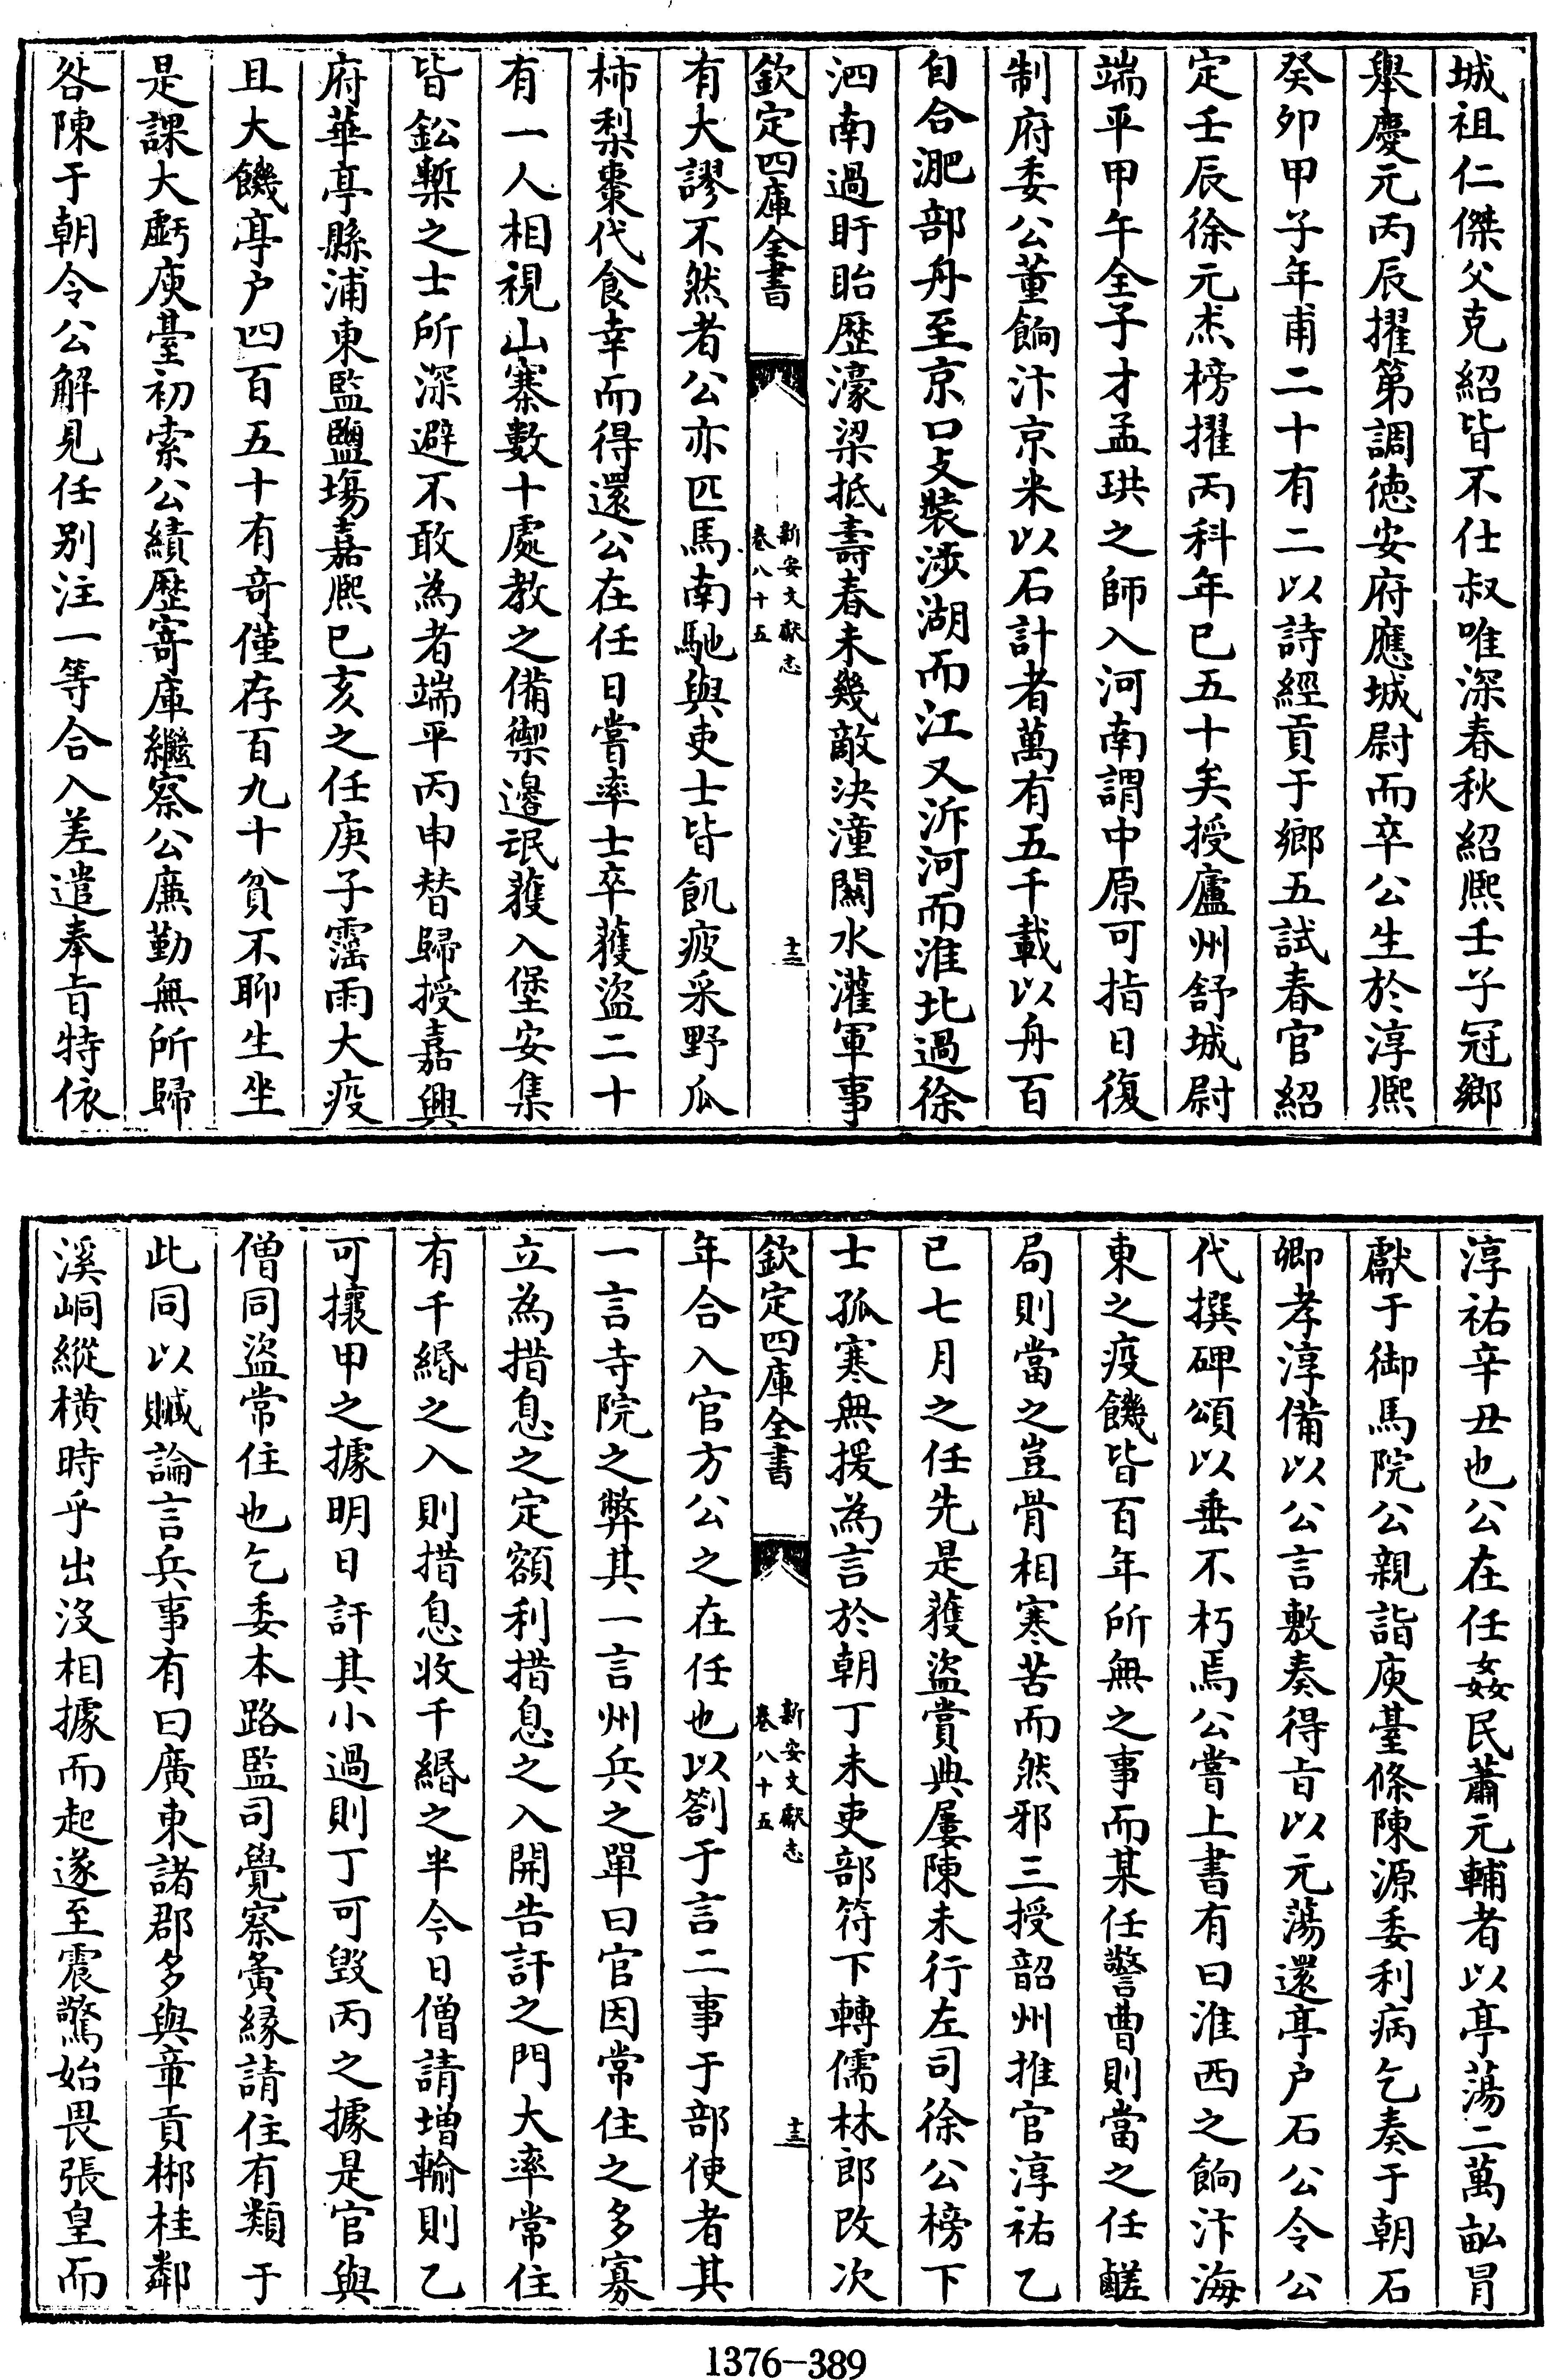 城祖仁傑父克紹皆不仕叔唯深春秋紹熙壬子冠鄉
舉慶元丙辰擢第調徳安府應城尉而卒公生於淳熙
癸卯甲子年甫二十有二以詩經貢于鄉五試春官紹
定壬辰徐元杰榜擢丙科年已五十矣授廬州舒城尉
端平甲午全子才孟珙之師入河南謂中原可指日復
制府委公董餉汴京米以石計者萬有五千載以舟百
自合淝部舟至京口攴裝涉湖而江又泝河而淮北過徐
泗南過盱眙歴濠梁抵壽春未幾敵決潼關水灌軍事
欽定四庫全書
新安文獻志
卷八十五
十三
有大謬不然者公亦匹馬南馳與吏士皆飢疲采野瓜
柿梨棗代食幸而得還公在任日嘗率士卒獲盜二十
有一人相視山寨數十處教之備禦邉氓獲入堡安集
皆鉛槧之士所深避不敢為者端平丙申替歸授嘉興
府華亭縣浦東監鹽塲嘉熙已亥之任庚子霪雨大疫
且大饑亭户四百五十有竒僅存百九十貧不聊生坐
是課大虧庾臺初索公績歴寄庫繼察公廉勤無所歸
咎陳于朝令公解見任别注一等合入差遣奉㫖特依
淳祐辛丑也公在任姦民蕭元輔者以亭蕩二萬畆冐
獻于御馬院公親詣庾臺條陳源委利病乞奏于朝石
卿孝淳備以公言敷奏得㫖以元蕩還亭户石公令公
代撰碑頌以垂不朽焉公嘗上書有曰淮西之餉汴海
東之疫饑皆百年所無之事而某任警曹則當之任鹺
局則當之豈骨相寒苦而然邪三授韶州推官淳祐乙
巳七月之任先是獲盜賞典屢陳未行左司徐公榜下
士孤寒無援為言於朝丁未吏部符下轉儒林郎改次
欽定四庫全書
新安文獻志
卷八十五
十三
年合入官方公之在任也以劄于言二事于部使者其
一言寺院之弊其一言州兵之單曰官因常住之多寡
立為措息之定額利措息之入開告訐之門大率常住
有千緡之入則措息收千緡之半今日僧請增輸則乙
可攘甲之據明日訐其小過則丁可毁丙之據是官與
僧同盜常住也乞委本路監司覺察夤緣請住有類于
此同以贓論言兵事有曰廣東諸郡多與章貢郴桂鄰
溪峒縱横時乎出没相據而起遂至震驚始畏張皇而
1376-389